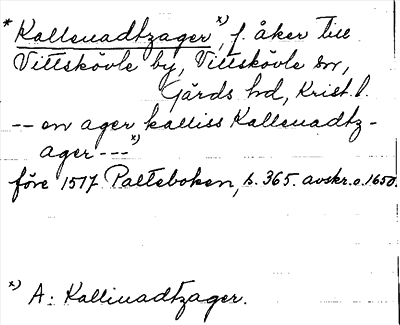 * Kallsuadtzager x), f. åker till
Vittskövle by, Vittskövle sn,
Gärds hd, Krist. l.
-- en ager kalliss Kallsuadtz-
ager --- x)
före 1517 Palteboken, s. 365. avskr. o. 1650.
x) A: Kalliuadtzager.